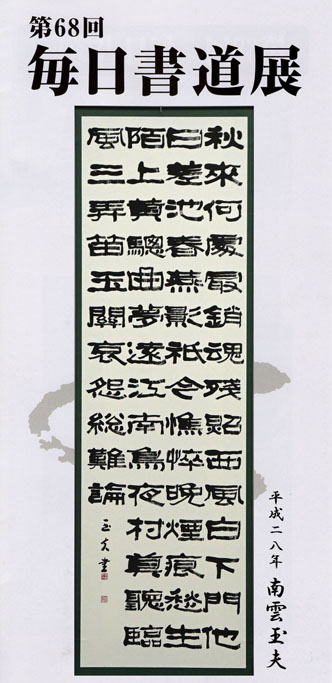 第68回
毎日書道展
秋來何處最銷魂殘照西風白下門他
日差池春燕影祇今憔悴晚煙痕愁生
陌上黃驄曲夢遠江南烏夜村莫聽臨
風三弄笛玉關哀怨總難論
玉夫書
平成二八年 南雲玉夫